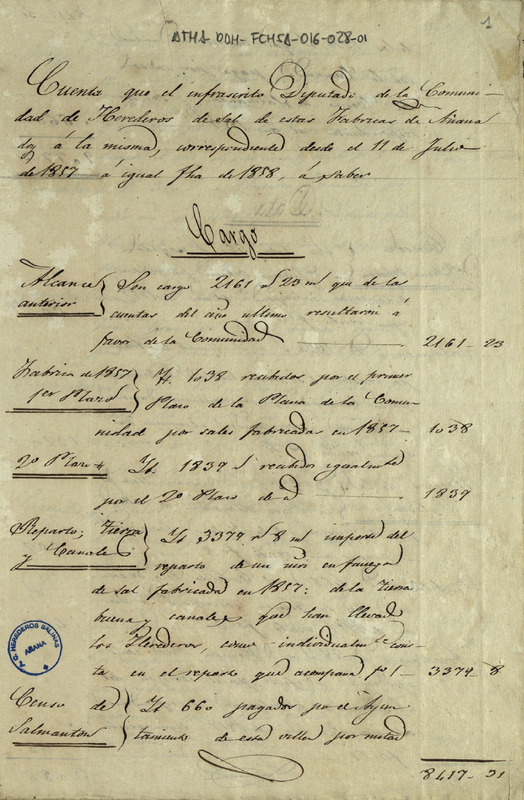 1
ATHA DDH-FCHSA-016-028-01
Cuenta que el infrascrito Diputado de la Comuni-
dad de Herederos de Sal de estas Fabricas de Añana
doy á la misma, correspondiente desde el 11 de Julio
de 1857 á igual fha de 1858, á saber
Cargo
Alcance
anterior
Son cargo 2161 rs 23 ms que de las
cuentas del año ultimo resultaron á
favor de la Comunidad 2161 - 23
Fabrica de 1857
1er Plazo
Yt. 1038 recibidos por el primer
Plazo de la Plana de la Comu-
nidad por sales fabricadas en 1857 - 1038
2º Plazo
Yt. 1839 rs recibidos igualmte
por el 2º Plazo de id 1839
Reparto; Tierra
y Canales
Yt 3374 rs 8 ms importe del
reparto de un mrs en fanega
de sal fabricada en 1857: de la tierra
buena y canales que han llevado
los Herederos, como individualmte cons-
ta en el reparto que acompaña fº 1 - 3374 - 8
Censo de
Salmanton
Yt 660 pagados por el Ayun
tamiento de esta villa por mitad
8417 - 31
T. C. HEREDEROS SALINAS
AÑANA